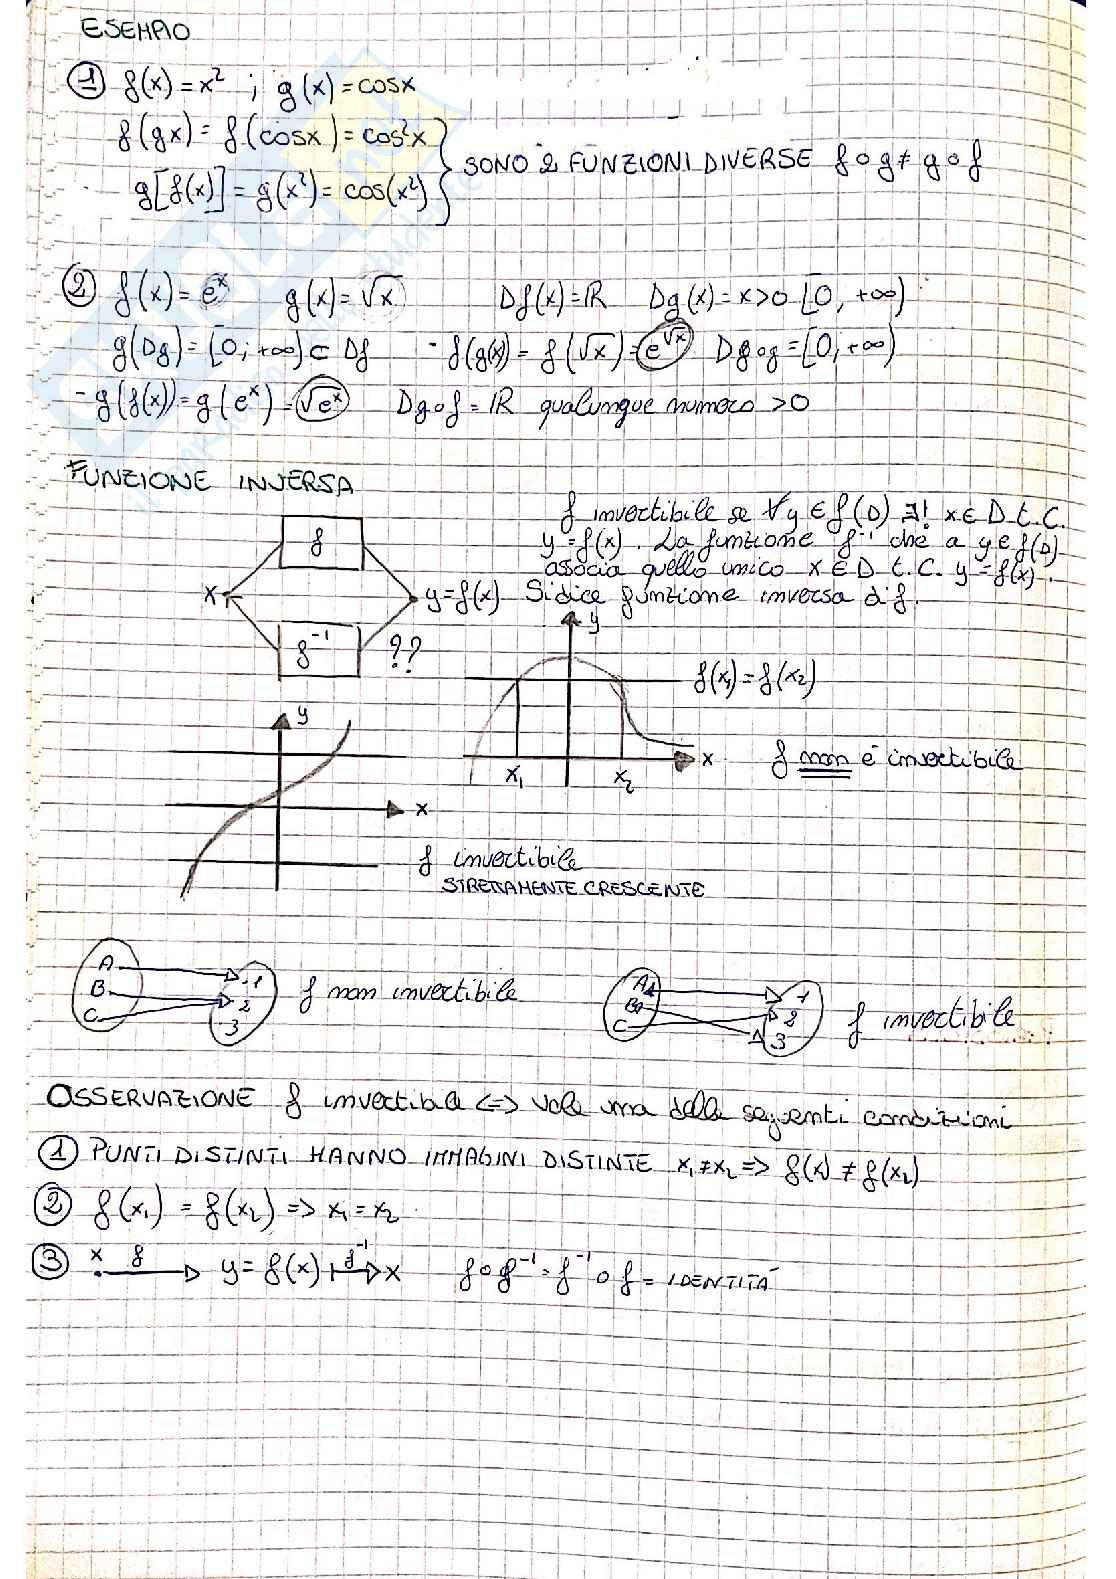 ESEMPIO
① f(x) = x² ; g(x) = cosx
f(gx) = f(cosx) = cos²x
g[f(x)] = g(x²) = cos(x²)
} SONO 2 FUNZIONI DIVERSE f∘g ≠ g∘f
② f(x) = eˣ g(x) = √x Df(x) = ℝ Dg(x) = x>0 [0; +∞)
g(Dg) = [0; +∞] ⊂ Df - f(g(x)) = f(√x) = e^√x Df∘g = [0; +∞)
- g(f(x)) = g(eˣ) = √eˣ Dg∘f = ℝ qualunque numero >0
FUNZIONE INVERSA
f invertibile se ∀y ∈ f(D) ∃! x ∈ D t.c.
y = f(x). La funzione f⁻¹ che a y ∈ f(D)
associa quello unico x ∈ D t.c. y = f(x).
Si dice funzione inversa di f.
f
x
y = f(x)
f⁻¹ ??
y
f(x₁) = f(x₂)
x
x₁ x₂
f non è invertibile
y
x
f invertibile
STRETTAMENTE CRESCENTE
A 1
B 2
C 3
f non invertibile
A 1
B 2
C 3
f invertibile
OSSERVAZIONE f invertibile <=> vale una delle seguenti condizioni
① PUNTI DISTINTI HANNO IMMAGINI DISTINTE x₁ ≠ x₂ => f(x) ≠ f(x₂)
② f(x₁) = f(x₂) => x₁ = x₂
③ x f y = f(x) f⁻¹ x f∘f⁻¹ = f⁻¹∘f = IDENTITÀ